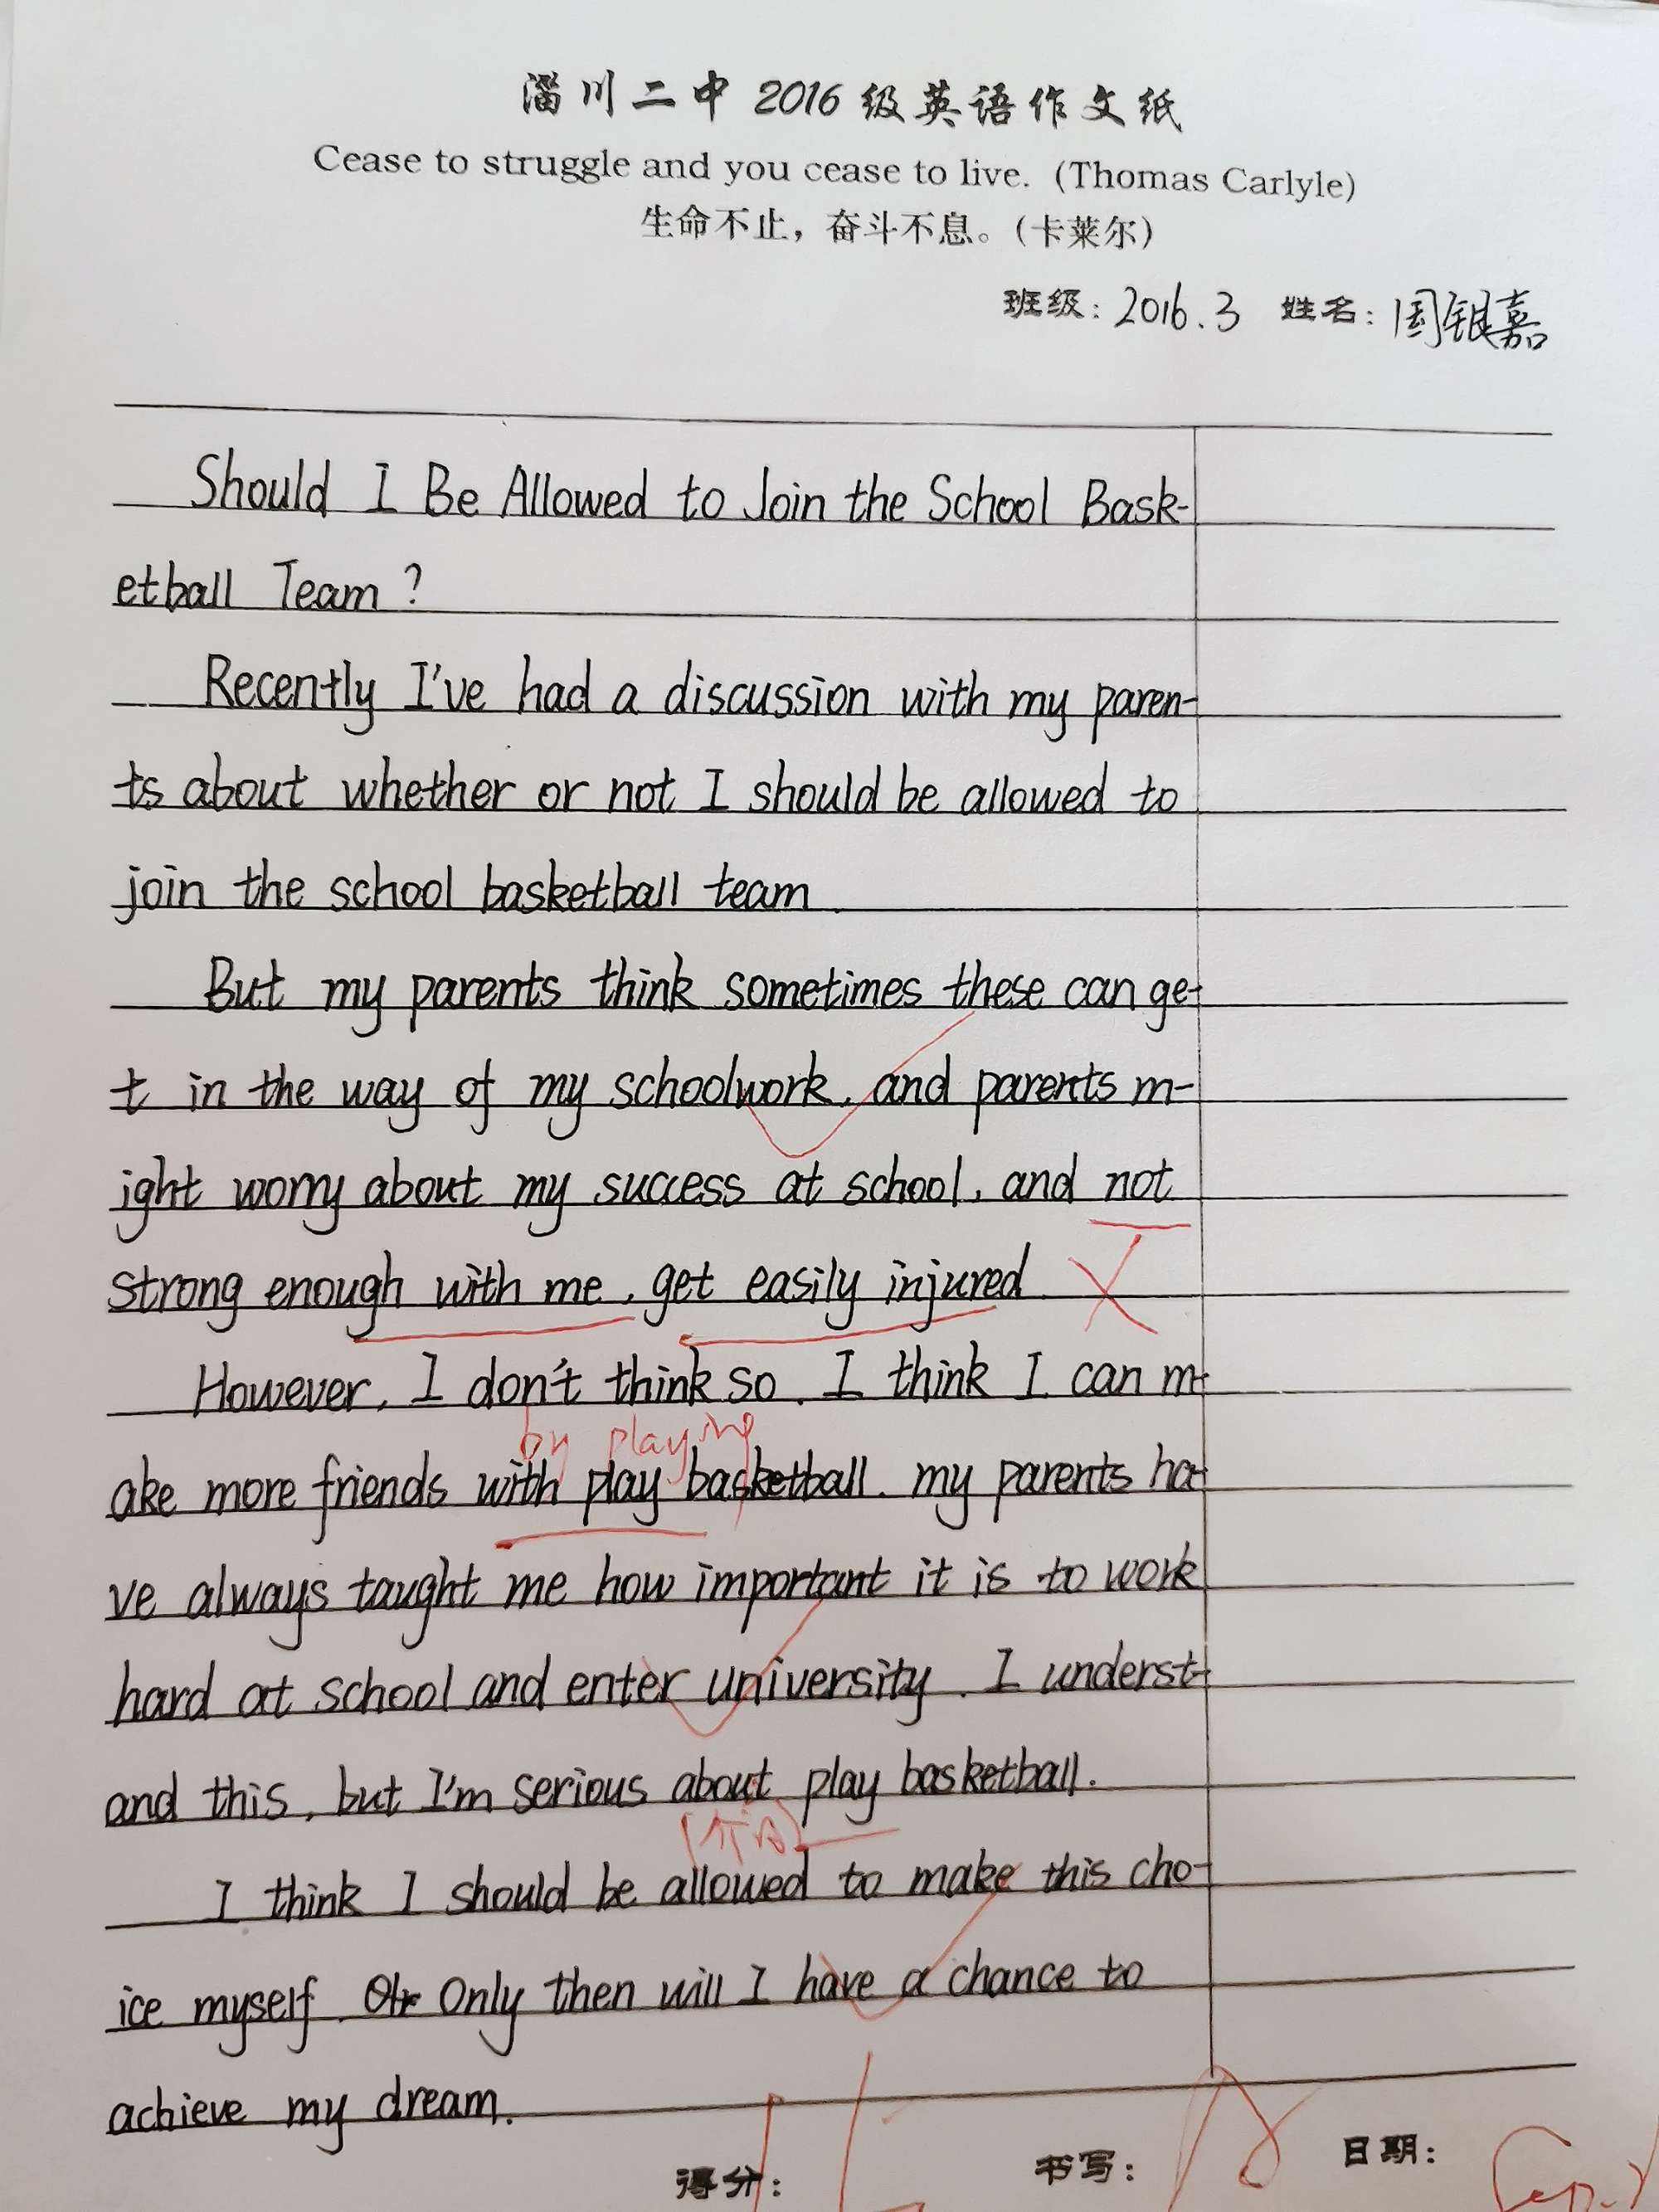 淄川二中 2016 级英语作文纸
Cease to struggle and you cease to live. (Thomas Carlyle)
生命不止，奋斗不息。(卡莱尔)
班级: 2016.3 姓名: 周银嘉
Should I Be Allowed to Join the School Bask-
etball Team?
Recently I've had a discussion with my paren-
ts about whether or not I should be allowed to
join the school basketball team.
But my parents think sometimes these can ge-
t in the way of my schoolwork, and parents m-
ight worry about my success at school, and not
strong enough with me, get easily injured.
However, I don't think so. I think I can m-
by playing
ake more friends with play basketball. my parents ha-
ve always taught me how important it is to work
hard at school and enter university. I underst-
and this, but I'm serious about play basketball.
(介词)
I think I should be allowed to make this cho-
ice myself. Only then will I have a chance to
achieve my dream.
得分: 书写: 日期: